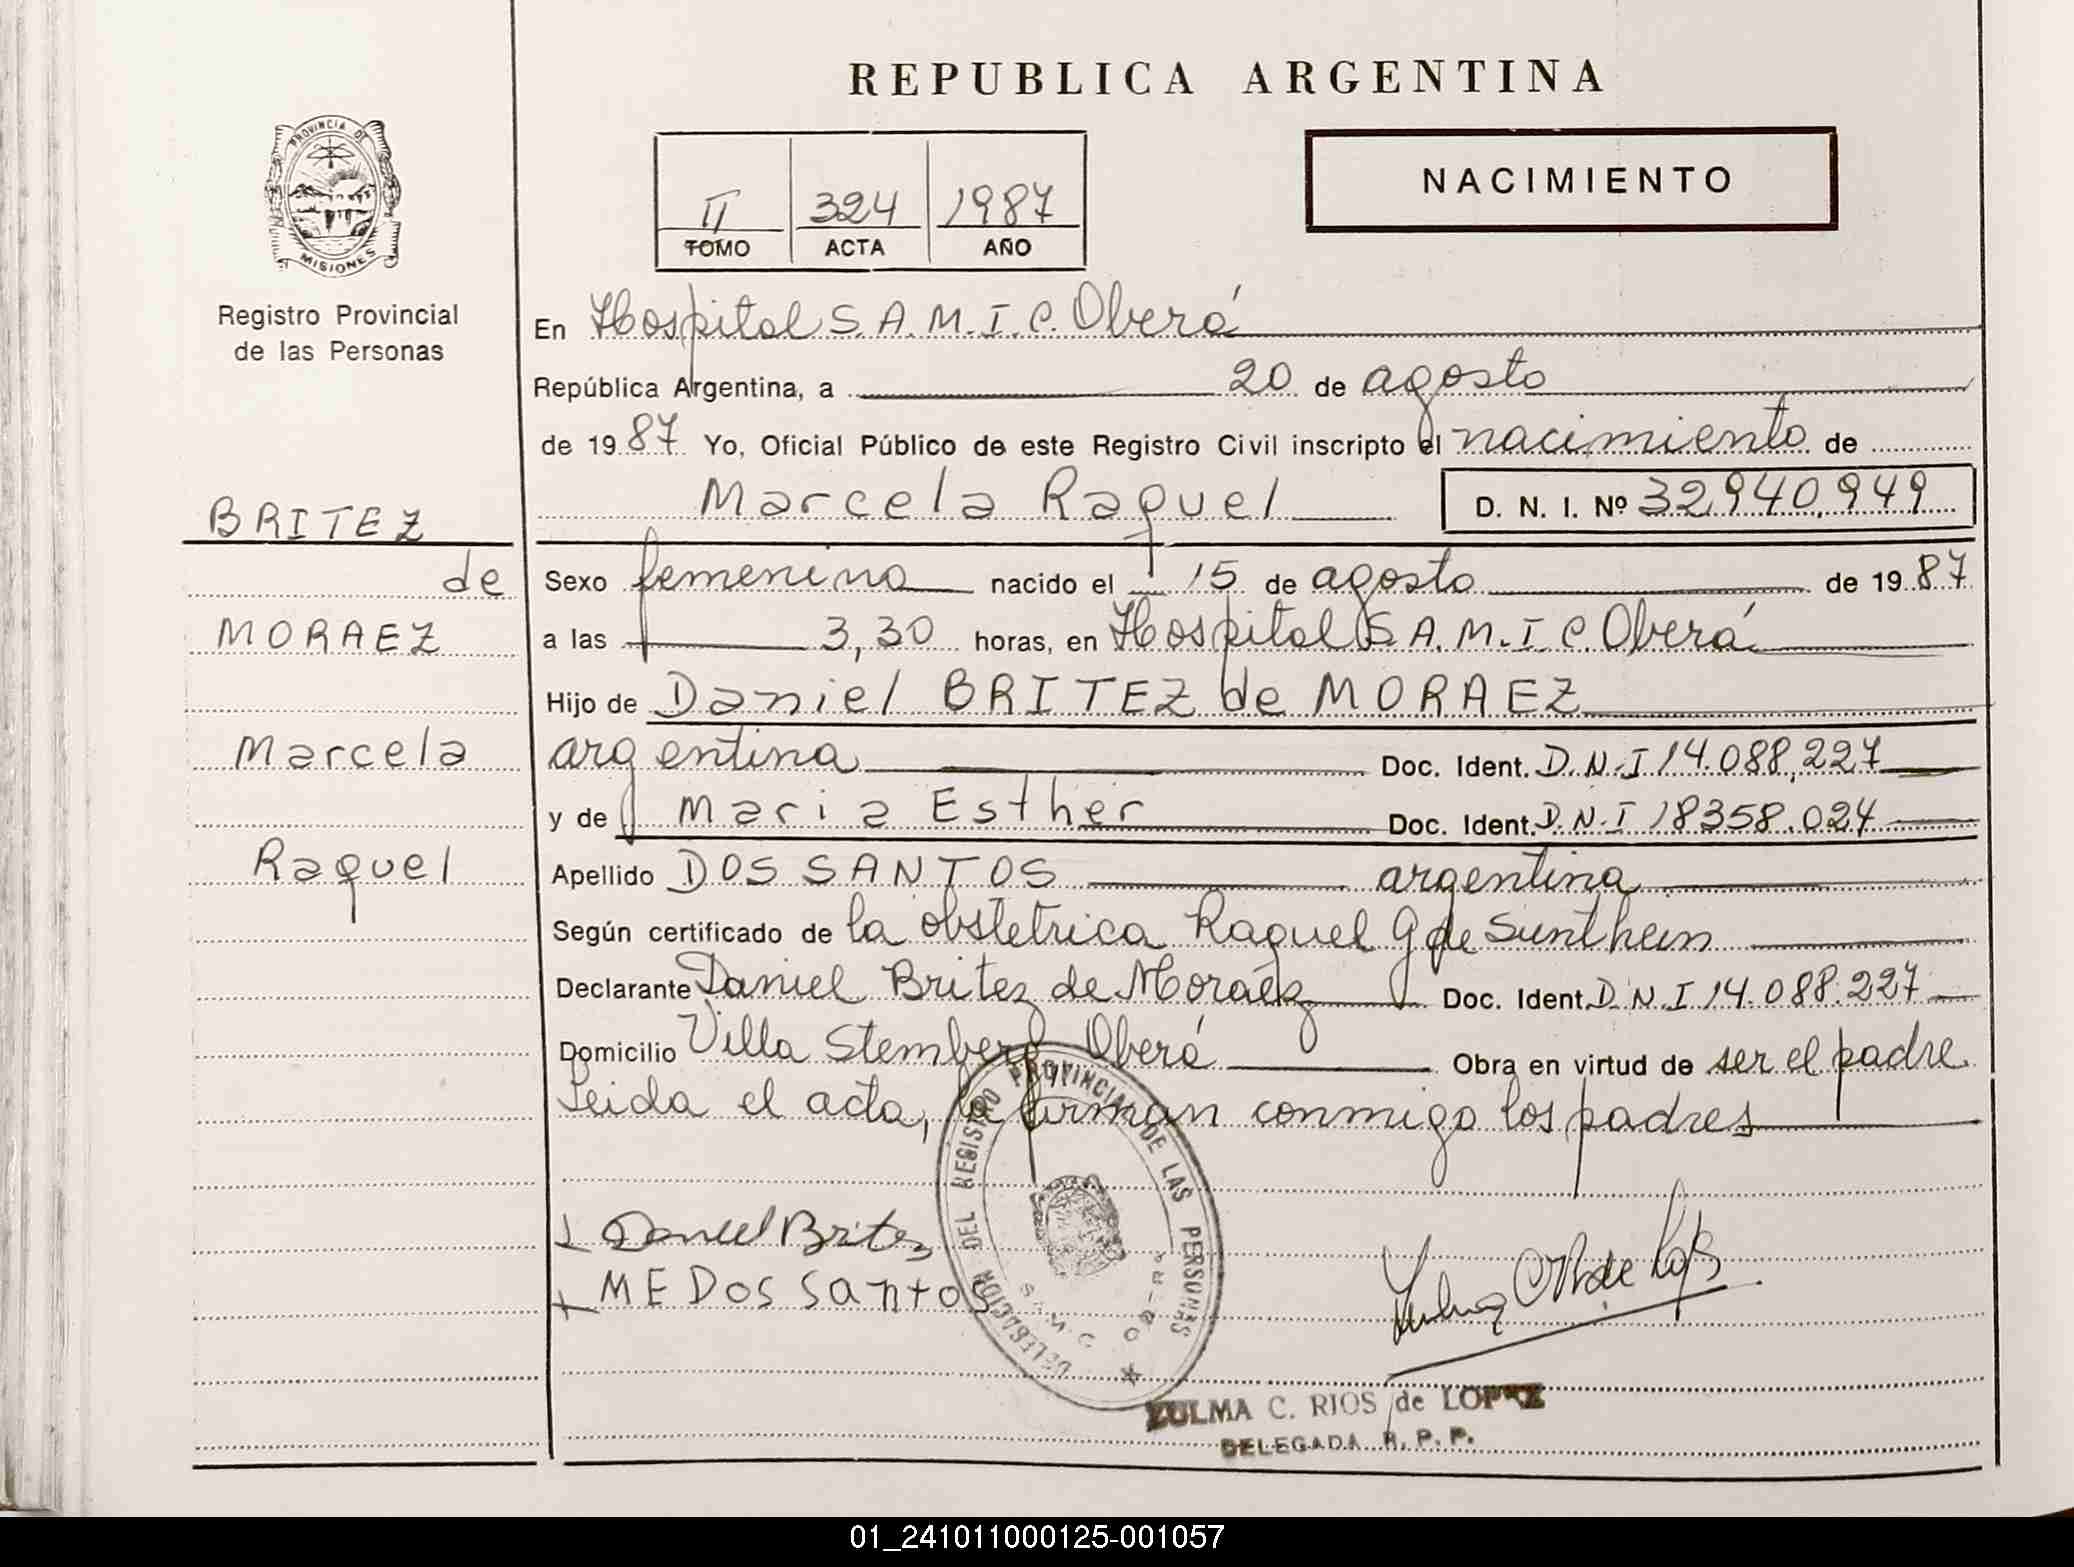 REPUBLICA ARGENTINA
PROVINCIA DE
MISIONES
Registro Provincial
de las Personas
II 324 1987
TOMO ACTA AÑO
NACIMIENTO
En Hospital S.A.M.I.C. Oberá
República Argentina, a 20 de agosto
de 1987 Yo, Oficial Público de este Registro Civil inscripto el nacimiento de
Marcela Raquel D. N. I. Nº 32.940.949
BRITEZ
de
MORAEZ
Marcela
Raquel
Sexo femenino nacido el 15 de agosto de 1987
a las 3,30 horas, en Hospital S.A.M.I.C. Oberá
Hijo de Daniel BRITEZ de MORAEZ
argentina Doc. Ident. D.N.I 14.088.227
y de Maria Esther Doc. Ident. D.N.I 18358.024
Apellido DOS SANTOS argentina
Según certificado de la obstetrica Raquel G de
Declarante Daniel Britez de Moraez Doc. Ident. D.N.I 14.088.227
Domicilio Villa Stemberg Oberá Obra en virtud de ser el padre
Leida el acta, la firman conmigo los padres
Daniel Britez
M E Dos Santos
DELEGACION DEL REGISTRO PROVINCIAL DE LAS PERSONAS
ZULMA C. RIOS de LOPEZ
DELEGADA R. P. P.
01_241011000125-001057